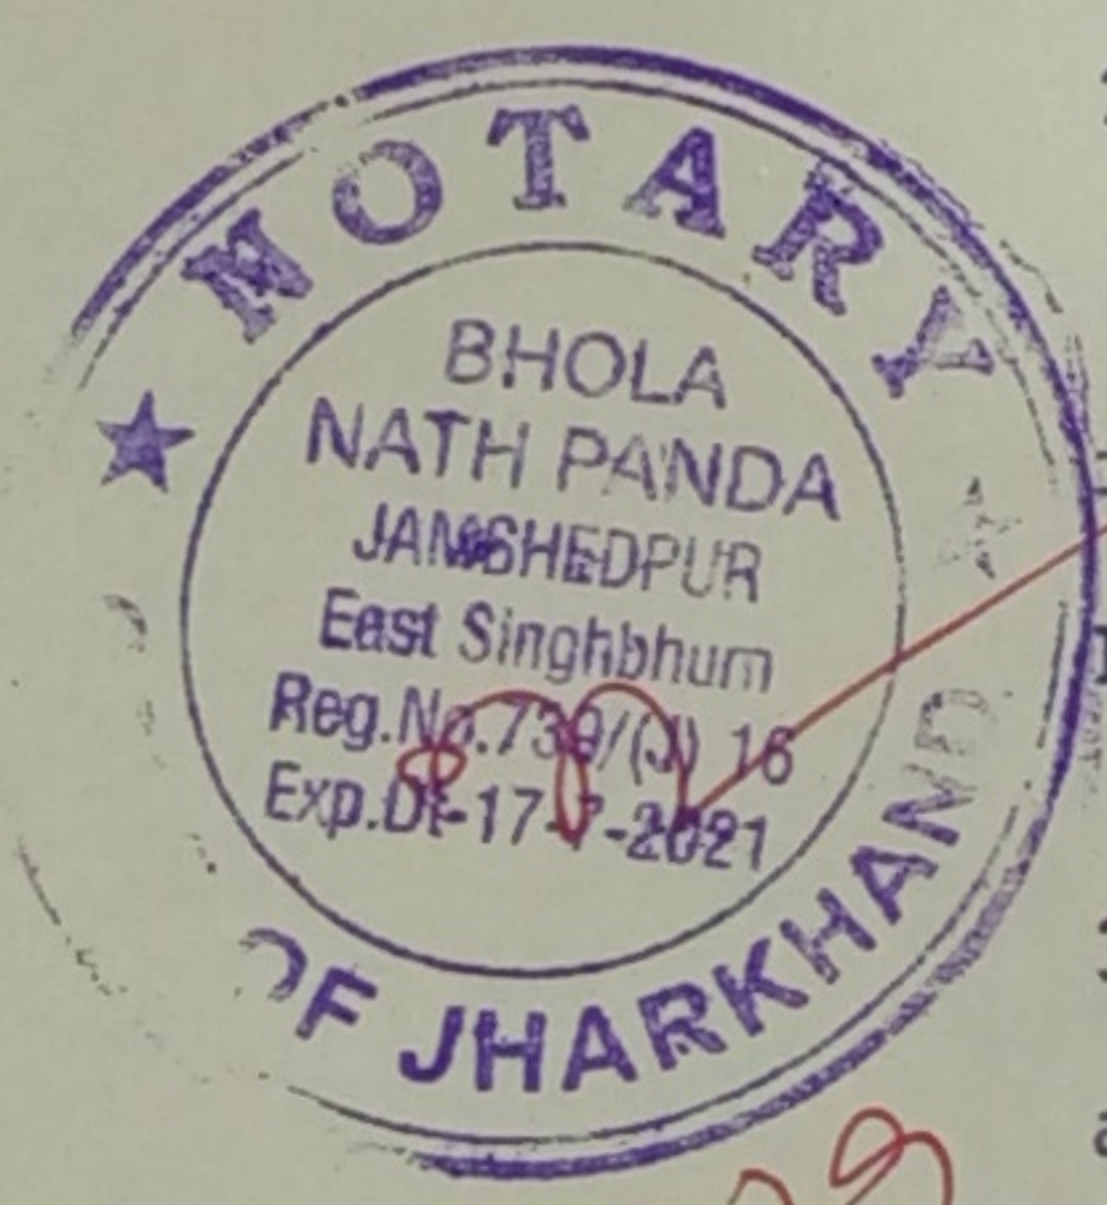 NOTARY
BHOLA
NATH PANDA
JAMSHEDPUR
East Singhbhum
Reg.No.739/(J) 16
Exp.Dt-17-7-2021
OF JHARKHAND